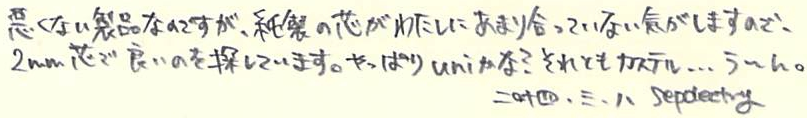 悪くない製品なのですが、紙製の芯がわたしにあまり合っていない気がしますので、
2mm芯で良いのを探しています。やっぱりuniかな?それともカステル...う〜ん。
二〇廿四・三・八